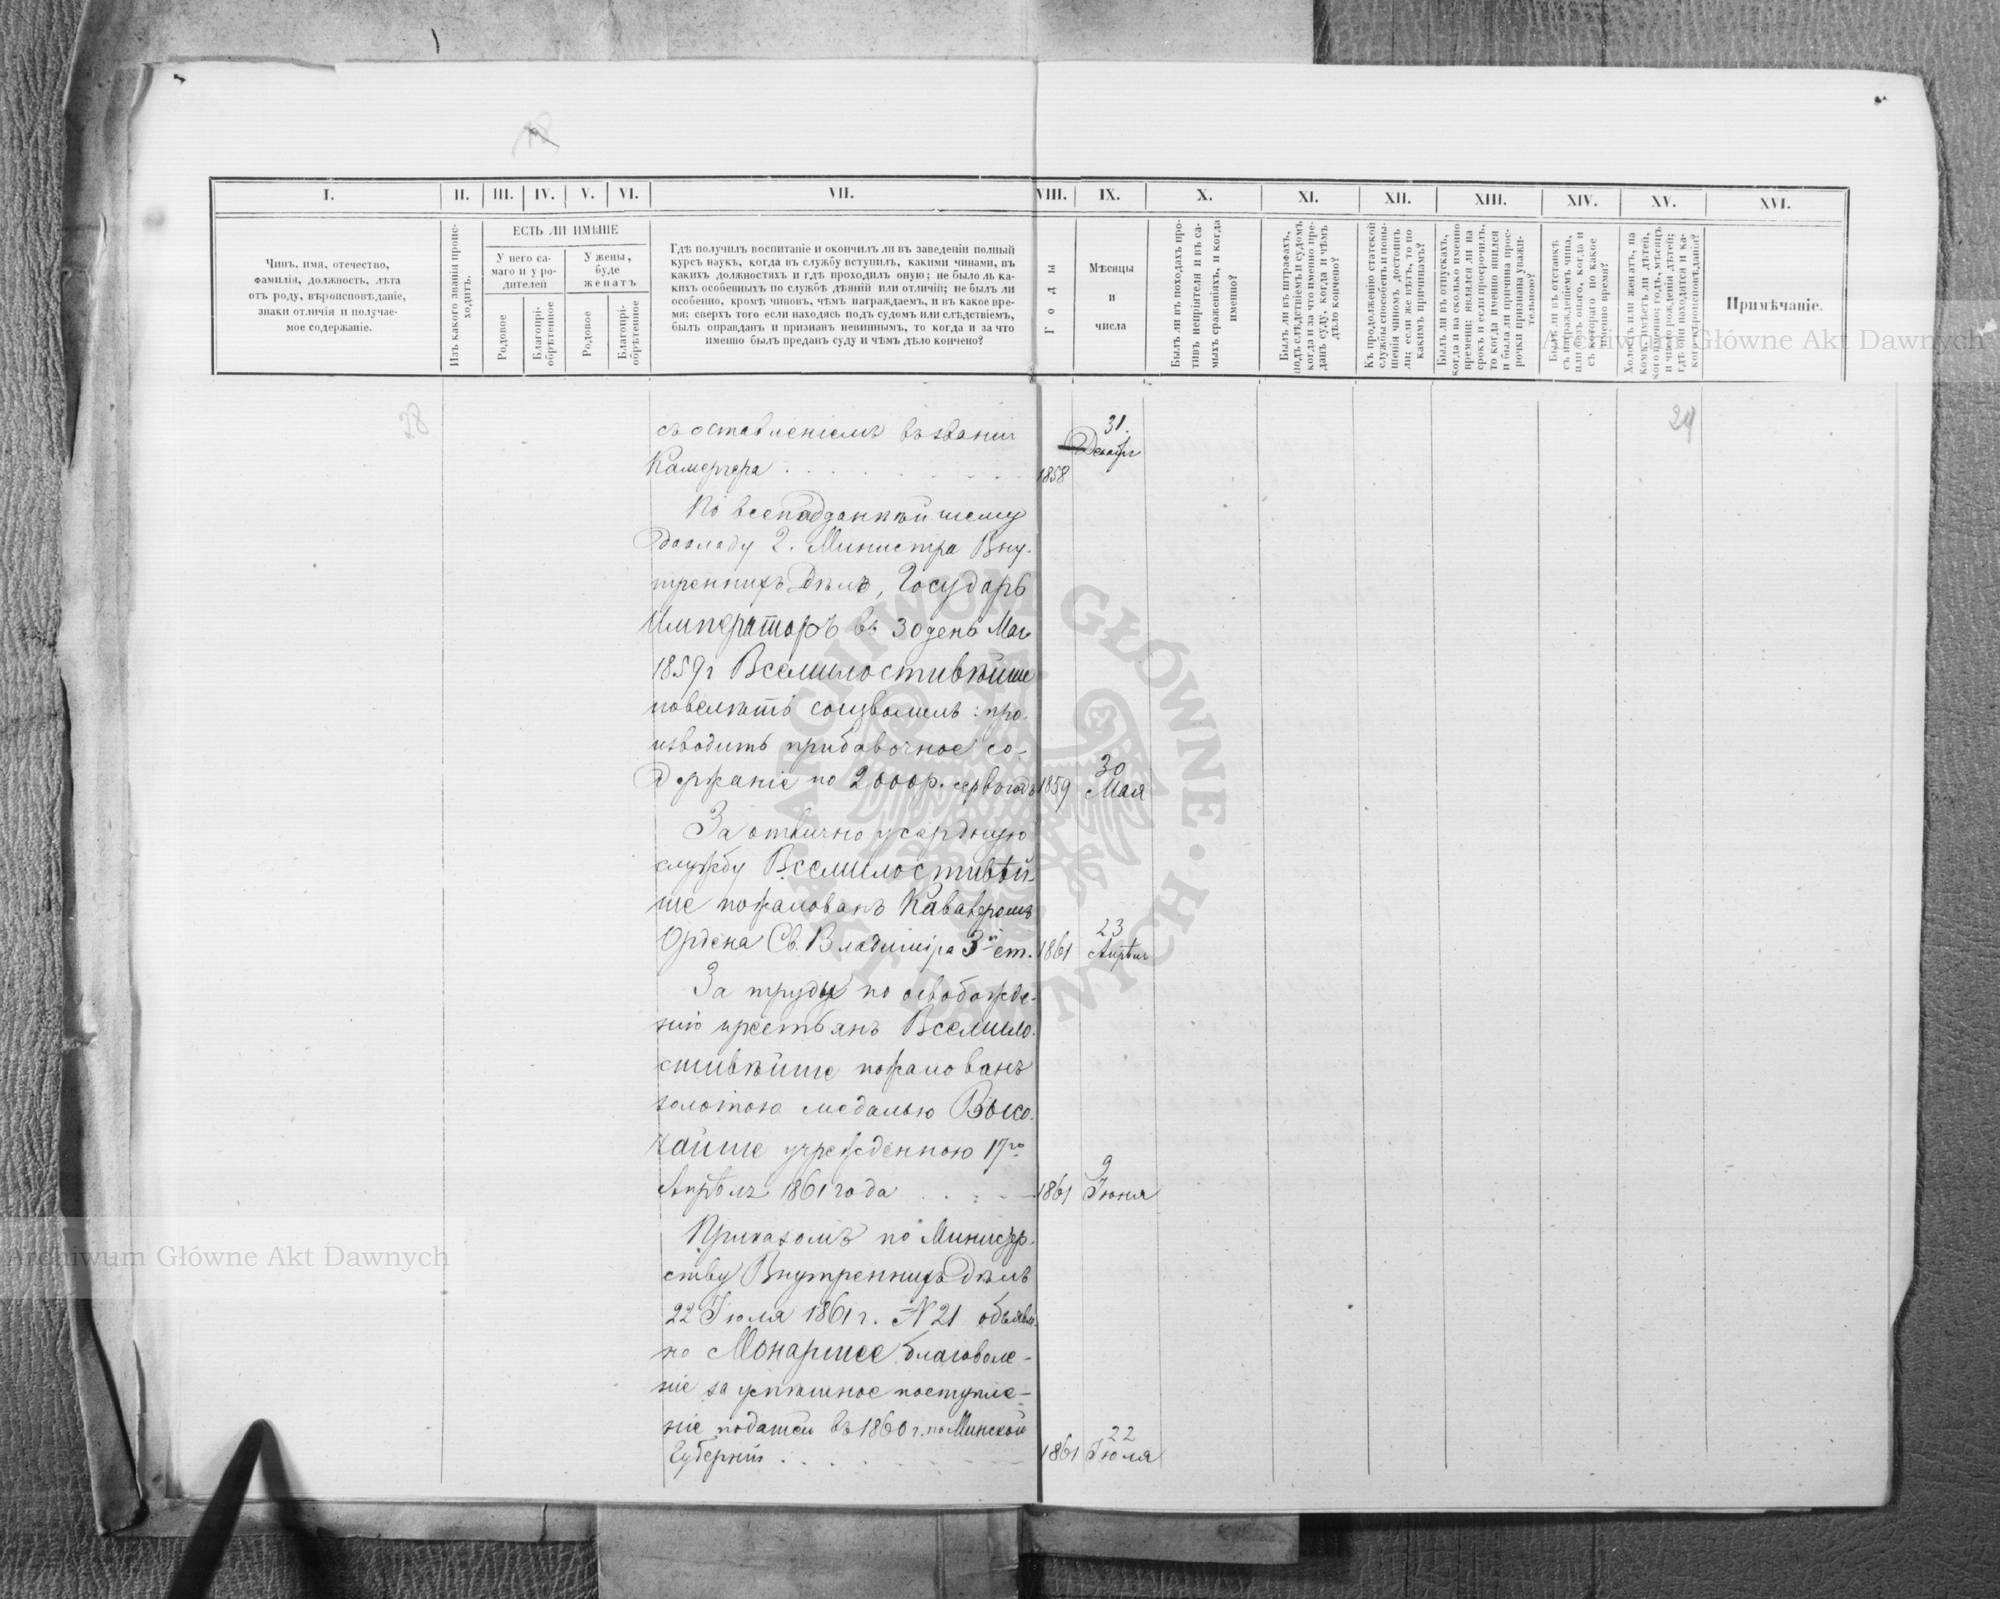 I. II. III. IV. V. VI. VII. VIII. IX. X. XI. XII. XIII. XIV. XV. XVI.
Чинъ, имя, отечество,
фамилія, должность, лѣта
отъ роду, вѣроисповѣданіе,
знаки отличія и получае-
мое содержаніе.
Изъ какого званія проис-
ходитъ.
ЕСТЬ ЛИ ИМѢНІЕ
У него са-
маго и у ро-
дителей
У жены,
буде
женатъ
Родовое
Благопрі-
обрѣтенное
Родовое
Благопрі-
обрѣтенное
Гдѣ получилъ воспитаніе и окончилъ ли въ заведеніи полный
курсъ наукъ, когда въ службу вступилъ, какими чинами, въ
какихъ должностяхъ и гдѣ проходилъ оную; не было ль ка-
кихъ особенныхъ по службѣ дѣяній или отличій; не былъ ли
особенно, кромѣ чиновъ, чѣмъ награждаемъ, и въ какое вре-
мя; сверхъ того если находясь подъ судомъ или слѣдствіемъ,
былъ оправданъ и признанъ невиннымъ, то когда и за что
именно былъ преданъ суду и чѣмъ дѣло кончено?
Годы
Мѣсяцы
и
числа
Былъ ли въ походахъ про-
тивъ непріятеля и въ са-
мыхъ сраженіяхъ, и когда
именно?
Былъ ли въ штрафахъ,
подъ слѣдствіемъ и судомъ
когда и за что именно пре-
данъ суду, когда и чѣмъ
дѣло кончено?
Къ продолженію статской
службы способенъ и повы-
шенія чиномъ достоинъ
ли; если же нѣтъ, то по
какимъ причинамъ?
Былъ ли въ отпускахъ,
когда и на сколько именно
времени; являлся ли на
срокъ и если просрочилъ,
то когда именно явился
и была ли причина прос-
рочки признана уважи-
тельною?
Былъ ли въ отставкѣ
съ награжденіемъ чина,
или безъ онаго, когда и
съ котораго по какое
именно время?
Холостъ или женатъ, на
комъ, имѣетъ ли дѣтей,
кого именно; годъ, мѣсяцъ
и число рожденія дѣтей;
гдѣ они находятся и ка-
кого вѣроисповѣданія?
Примѣчаніе.
28
29
съ оставленіемъ въ званіи
Камергера
1858
31.
Декабря
По всеподданнѣйшему
докладу Г. Министра Вну-
треннихъ Дѣлъ, Государь
Императоръ въ 30 день Мая
1859 г Всемилостивѣйше
повелѣть соизволилъ: про-
изводить прибавочное со-
держаніе по 2000 р. сер въ годъ
1859
30
Мая
За отлично усердную
службу Всемилостивѣй-
ше пожалованъ Кавалеромъ
Ордена Св. Владиміра 3й ст.
1861
23
Апрѣля
За труды по освобожде-
нію крестьянъ Всемило-
стивѣйше пожалованъ
золотою медалью Высо-
чайше учрежденною 17го
Апрѣля 1861 года
1861
9
Іюня
Приказомъ по Министер-
ству Внутреннихъ Дѣлъ
22 Іюля 1861 г. № 21 объявле-
но Монаршее благоволе-
ніе за успѣшное поступле-
ніе податей въ 1860 г. по Минской
Губерніи
1861
22
Іюля
Archiwum Główne Akt Dawnych
Archiwum Główne Akt Dawnych
ARCHIWUM GŁÓWNE AKT DAWNYCH